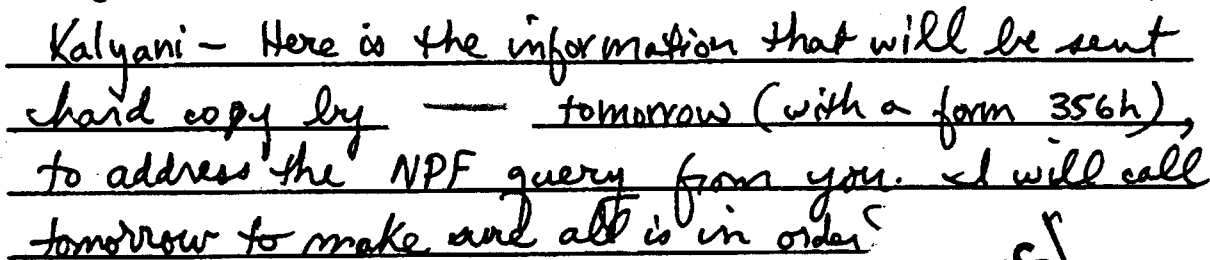 Kalyani - Here is the information that will be sent
hard copy by — tomorrow (with a form 356h),
to address the NPF query from you. I will call
tomorrow to make sure all is in order